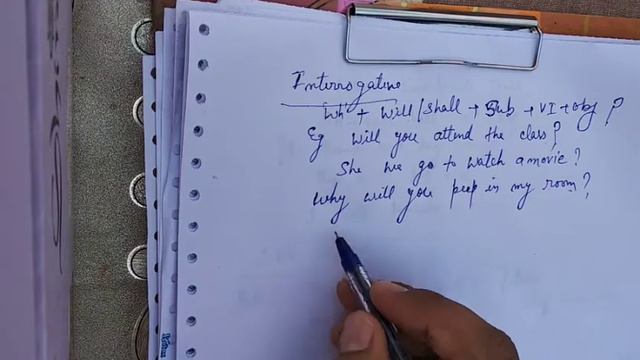 Interrogative
Wh + will/shall + Sub + VI + obj ?
Eg will you attend the class?
She we go to watch a movie?
Why will you peep in my room?